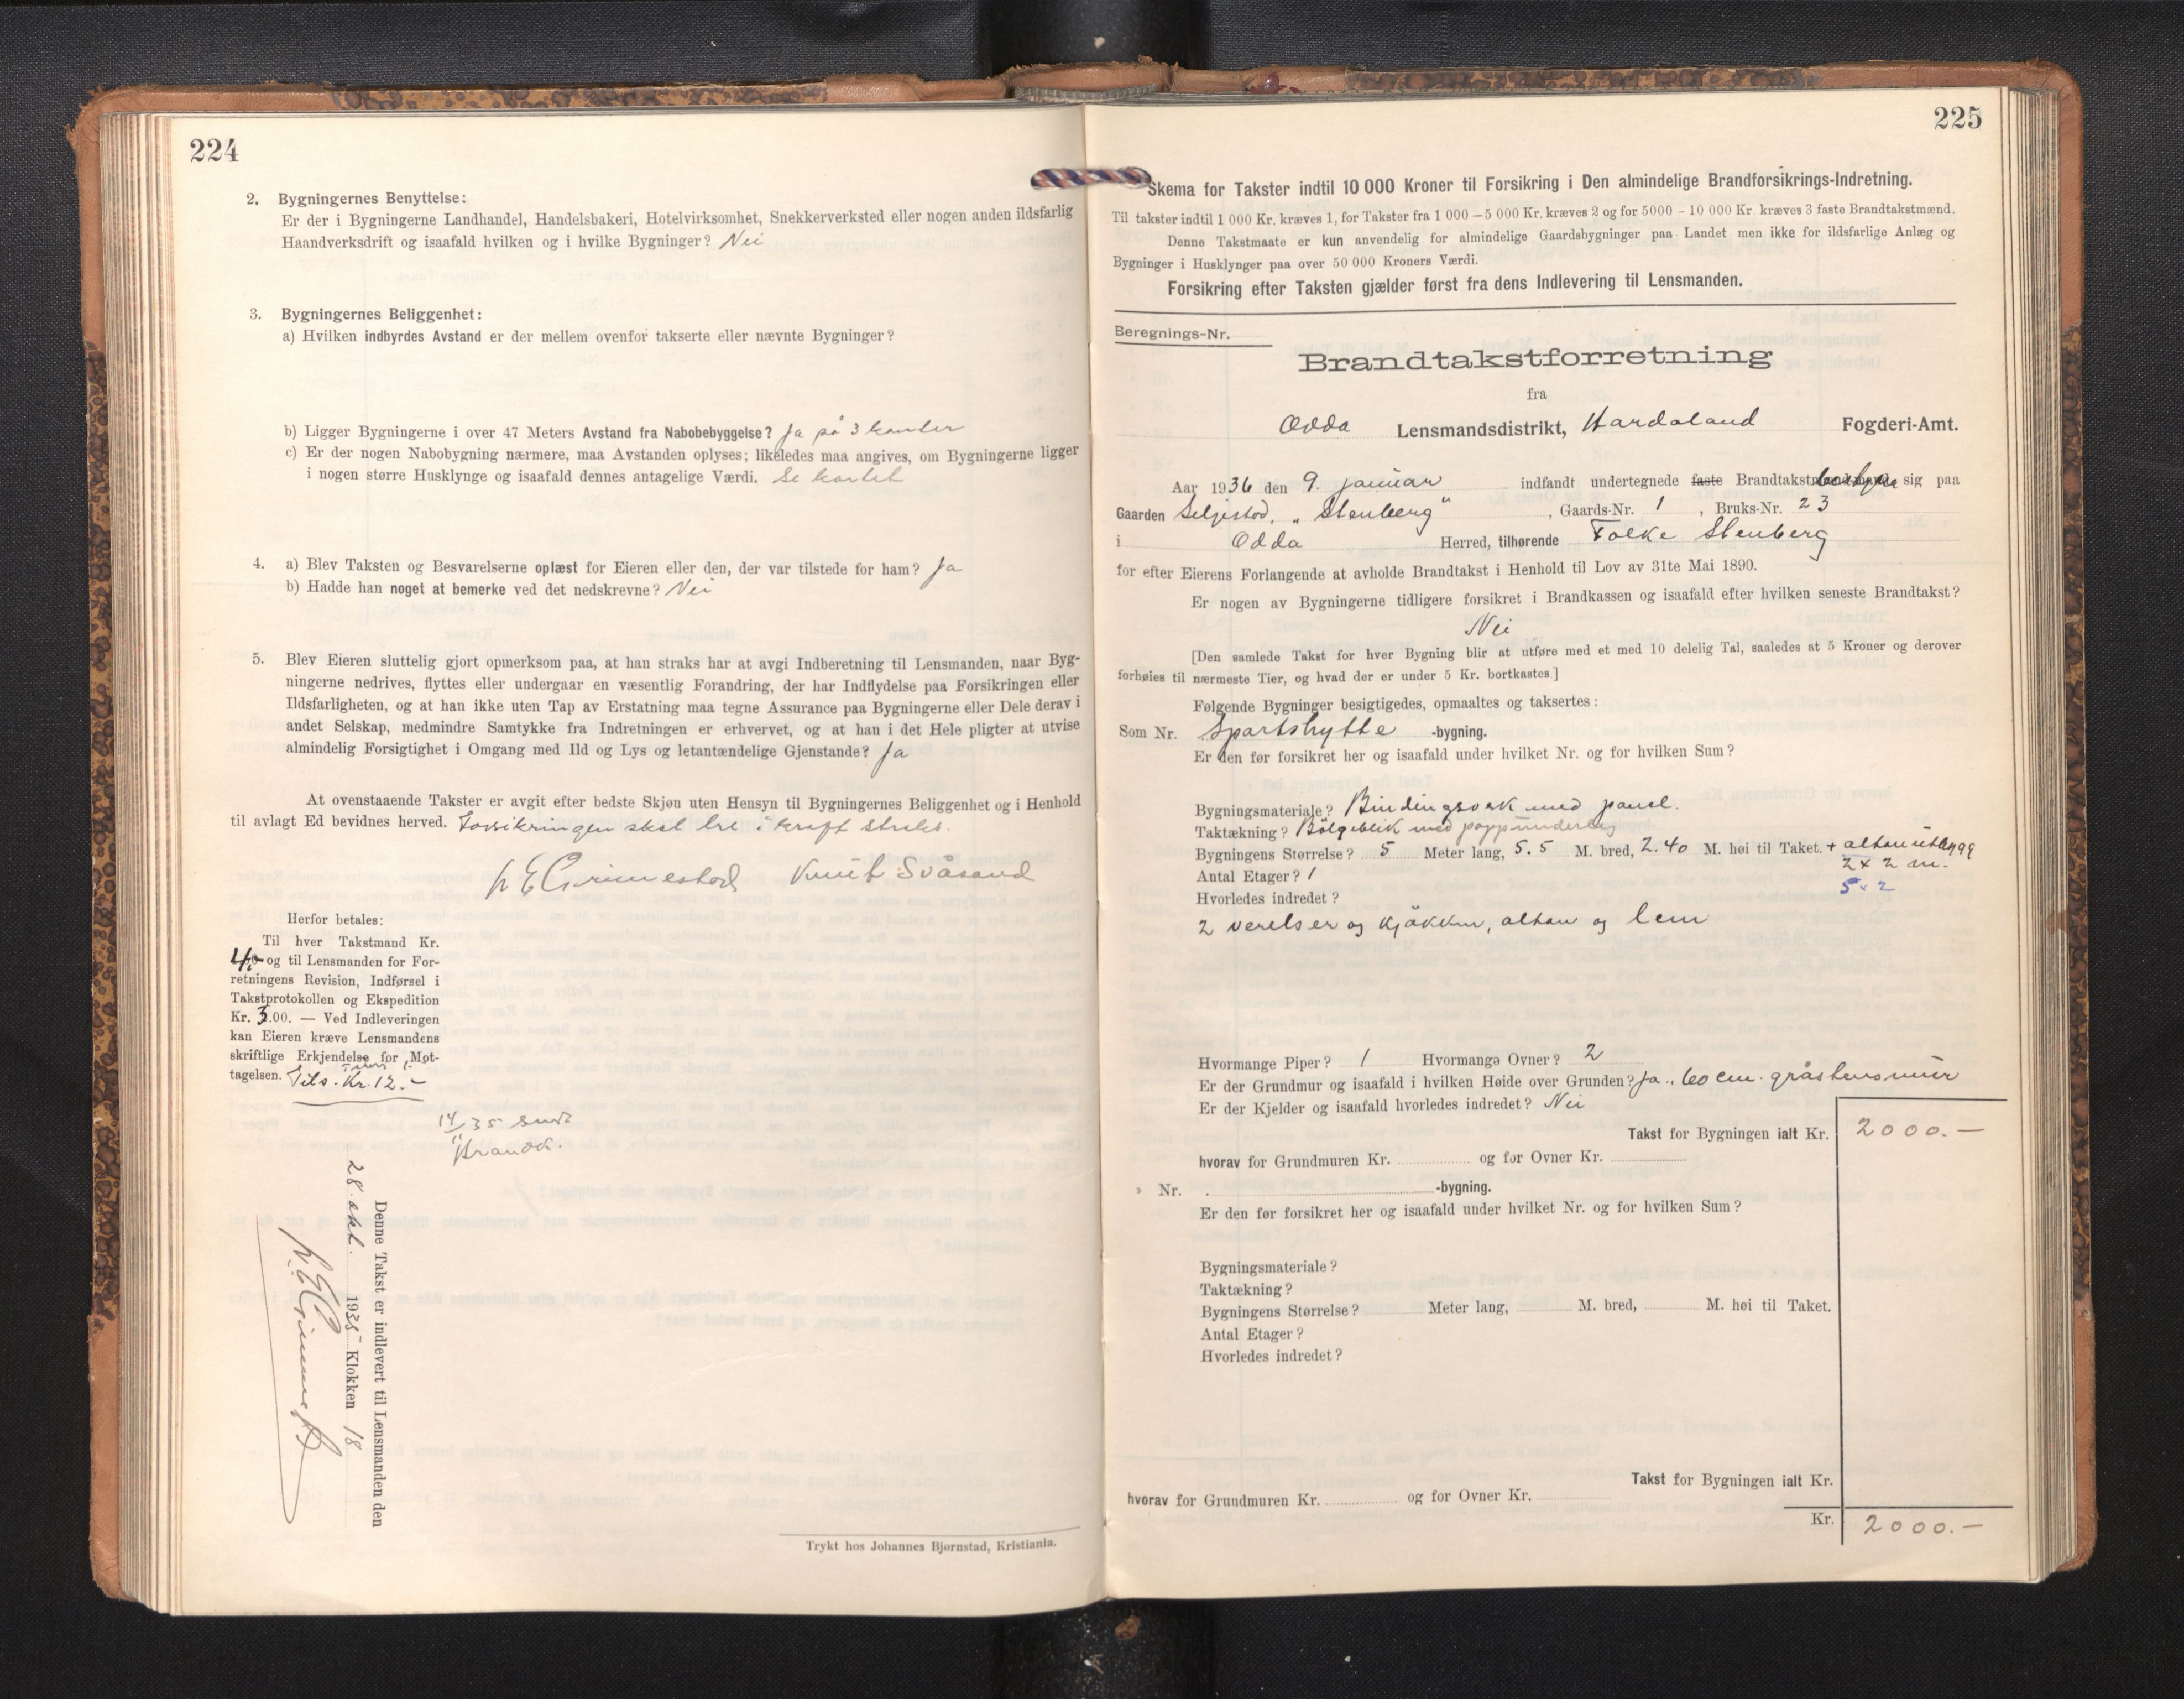 224
2. Bygningernes Benyttelse:
Er der i Bygningerne Landhandel, Handelsbakeri, Hotelvirksomhet, Snekkerverksted eller nogen anden ildsfarlig
Haandverksdrift og isaafald hvilken og i hvilke Bygninger? Nei
3. Bygningernes Beliggenhet:
a) Hvilken indbyrdes Avstand er der mellem ovenfor takserte eller nævnte Bygninger?
b) Ligger Bygningerne i over 47 Meters Avstand fra Nabobebyggelse? Ja på 3 kanter
c) Er der nogen Nabobygning nærmere, maa Avstanden oplyses; likeledes maa angives, om Bygningerne ligger
i nogen større Husklynge og isaafald dennes antagelige Værdi. Se kartet
4. a) Blev Taksten og Besvarelserne oplæst for Eieren eller den, der var tilstede for ham? Ja
b) Hadde han noget at bemerke ved det nedskrevne? Nei
5. Blev Eieren sluttelig gjort opmerksom paa, at han straks har at avgi Indberetning til Lensmanden, naar Byg-
ningerne nedrives, flyttes eller undergaar en væsentlig Forandring, der har Indflydelse paa Forsikringen eller
Ildsfarligheten, og at han ikke uten Tap av Erstatning maa tegne Assurance paa Bygningerne eller Dele derav i
andet Selskap, medmindre Samtykke fra Indretningen er erhvervet, og at han i det Hele pligter at utvise
almindelig Forsigtighet i Omgang med Ild og Lys og letantændelige Gjenstande? Ja
At ovenstaaende Takster er avgit efter bedste Skjøn uten Hensyn til Bygningernes Beliggenhet og i Henhold
til avlagt Ed bevidnes herved. Forsikringen skal tre i kraft straks.
Grimestad Knut Svåsand
Herfor betales:
Til hver Takstmand Kr.
4,- og til Lensmanden for For-
retningens Revision, Indførsel i
Takstprotokollen og Ekspedition
Kr. 3.00. — Ved Indleveringen
kan Eieren kræve Lensmandens
skriftlige Erkjendelse for Mot-
tagelsen. Tils. Kr. 12.-
14/11 35 sendt
Brandk.
Denne Takst er indlevert til Lensmanden den
28. okt. 1935 Klokken 18
225
Skema for Takster indtil 10 000 Kroner til Forsikring i Den almindelige Brandforsikrings-Indretning.
Til takster indtil 1 000 Kr. kræves 1, for Takster fra 1 000 – 5 000 Kr. kræves 2 og for 5000 - 10 000 Kr kræves 3 faste Brandtakstmænd.
Denne Takstmaate er kun anvendelig for almindelige Gaardsbygninger paa Landet men ikke for ildsfarlige Anlæg og
Bygninger i Husklynger paa over 50 000 Kroners Værdi.
Forsikring efter Taksten gjælder først fra dens Indlevering til Lensmanden.
Beregnings-Nr.
Brandtakstforretning
fra
Odda Lensmandsdistrikt, Hordaland Fogderi-Amt.
Aar 1936 den 9. januar indfandt undertegnede faste Brandtakst sig paa
Gaarden Seljestad, "Stenberg", Gaards-Nr. 1, Bruks-Nr. 23
i Odda Herred, tilhørende Folke Stenberg
for efter Eierens Forlangende at avholde Brandtakst i Henhold til Lov av 31te Mai 1890.
Er nogen av Bygningerne tidligere forsikret i Brandkassen og isaafald efter hvilken seneste Brandtakst?
Nei
[Den samlede Takst for hver Bygning blir at utføre med et med 10 delelig Tal, saaledes at 5 Kroner og derover
forhøies til nærmeste Tier, og hvad der er under 5 Kr. bortkastes.]
Følgende Bygninger besigtigedes, opmaaltes og taksertes:
Som Nr. Sportshytte -bygning.
Er den før forsikret her og isaafald under hvilket Nr. og for hvilken Sum?
Bygningsmateriale? Bindingsverk med panel.
Taktækning? Bölgeblik med pappunderlag
Bygningens Størrelse? 5 Meter lang, 5.5 M. bred, 2.40 M. høi til Taket. + altanutbygg
2 x 2 m.
Antal Etager? 1
5 x 2
Hvorledes indredet?
2 verelser og kjökken, altan og lem
Hvormange Piper? 1 Hvormange Ovner? 2
Er der Grundmur og isaafald i hvilken Høide over Grunden? Ja, 60 cm. gråstensmur
Er der Kjelder og isaafald hvorledes indredet? Nei
Takst for Bygningen ialt Kr. 2000.—
hvorav for Grundmuren Kr. og for Ovner Kr.
» Nr. -bygning.
Er den før forsikret her og isaafald under hvilket Nr. og for hvilken Sum?
Bygningsmateriale?
Taktækning?
Bygningens Størrelse? Meter lang, M. bred, M. høi til Taket.
Antal Etager?
Hvorledes indredet?
Takst for Bygningen ialt Kr.
hvorav for Grundmuren Kr. og for Ovner Kr.
Kr. 2000.—
Trykt hos Johannes Bjørnstad, Kristiania.